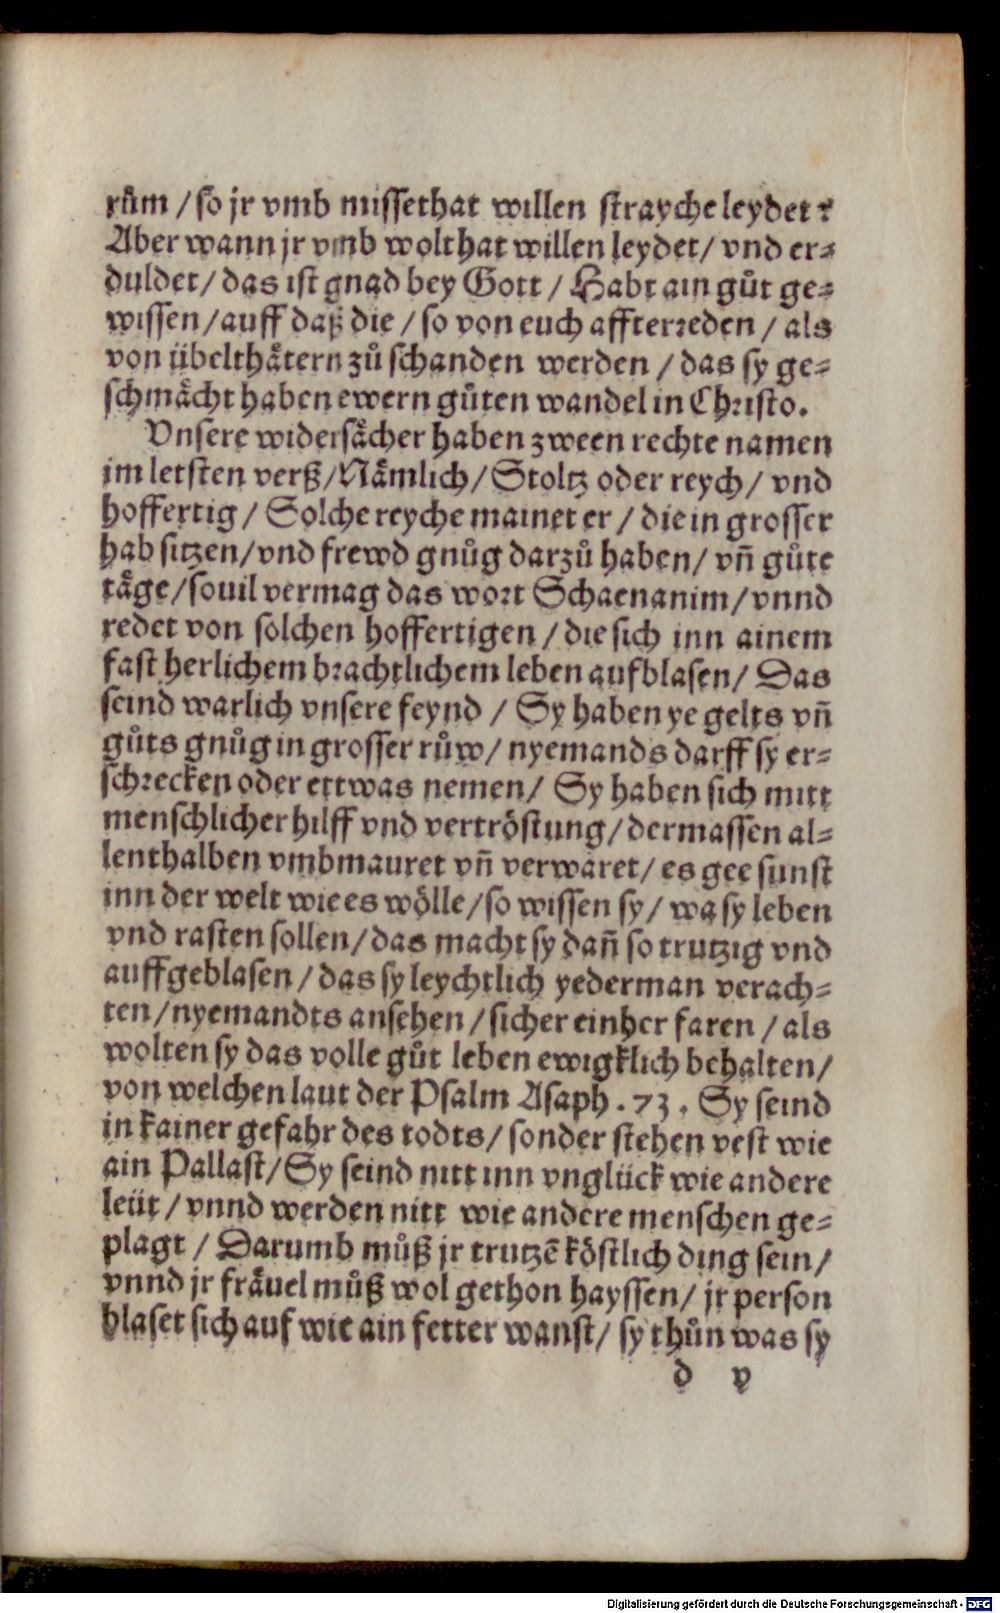 rům / so jr vmb missethat willen strayche leydet?
Aber wann jr vmb wolthat willen leydet/ vnd er⸗
duldet/ das ist gnad bey Gott / Habt ain gůt ge⸗
wissen/auff daß die / so von euch affterreden / als
von übelthåtern zů schanden werden / das sy ge⸗
schmåcht haben ewern gůten wandel in Christo.
Vnsere widersåcher haben zween rechte namen
im letsten verß/Nåmlich/ Stoltz oder reych/ vnd
hoffertig / Solche reyche mainet er / die in grosser
hab sitzen/vnd frewd gnůg darzů haben/ vñ gůte
tåge/souil vermag das wort Schaenanim/ vnnd
redet von solchen hoffertigen / die sich inn ainem
fast herlichem brachtlichem leben aufblasen/ Das
seind warlich vnsere feynd / Sy haben ye gelts vñ
gůts gnůg in grosser růw/ nyemands darff sy er⸗
schrecken oder ettwas nemen/ Sy haben sich mitt
menschlicher hilff vnd vertröstung/ dermassen al⸗
lenthalben vmbmauret vñ verwaret/ es gee sunst
inn der welt wie es wölle/so wissen sy/ wa sy leben
vnd rasten sollen/das macht sy dañ so trutzig vnd
auffgeblasen / das sy leychtlich yederman verach⸗
ten/nyemandts ansehen / sicher einher faren / als
wolten sy das volle gůt leben ewigklich behalten/
von welchen laut der Psalm Asaph . 73 . Sy seind
in kainer gefahr des todts/ sonder stehen vest wie
ain Pallast/Sy seind nitt inn vnglück wie andere
leüt / vnnd werden nitt wie andere menschen ge⸗
plagt / Darumb můß jr trutzē köstlich ding sein/
vnnd jr fråuel můß wol gethon hayssen/ jr person
blaset sich auf wie ain fetter wanst/ sy thůn was sy
d v
Digitalisierung gefördert durch die Deutsche Forschungsgemeinschaft - DFG